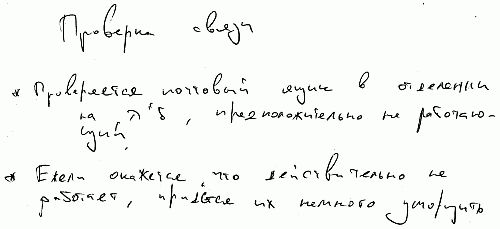 Проверка связи
* Проверяется почтовый ящик в отделении
на π"δ, предположительно не работаю-
щий,
* Если окажется, что действительно не
работает, придётся их немного уморщить